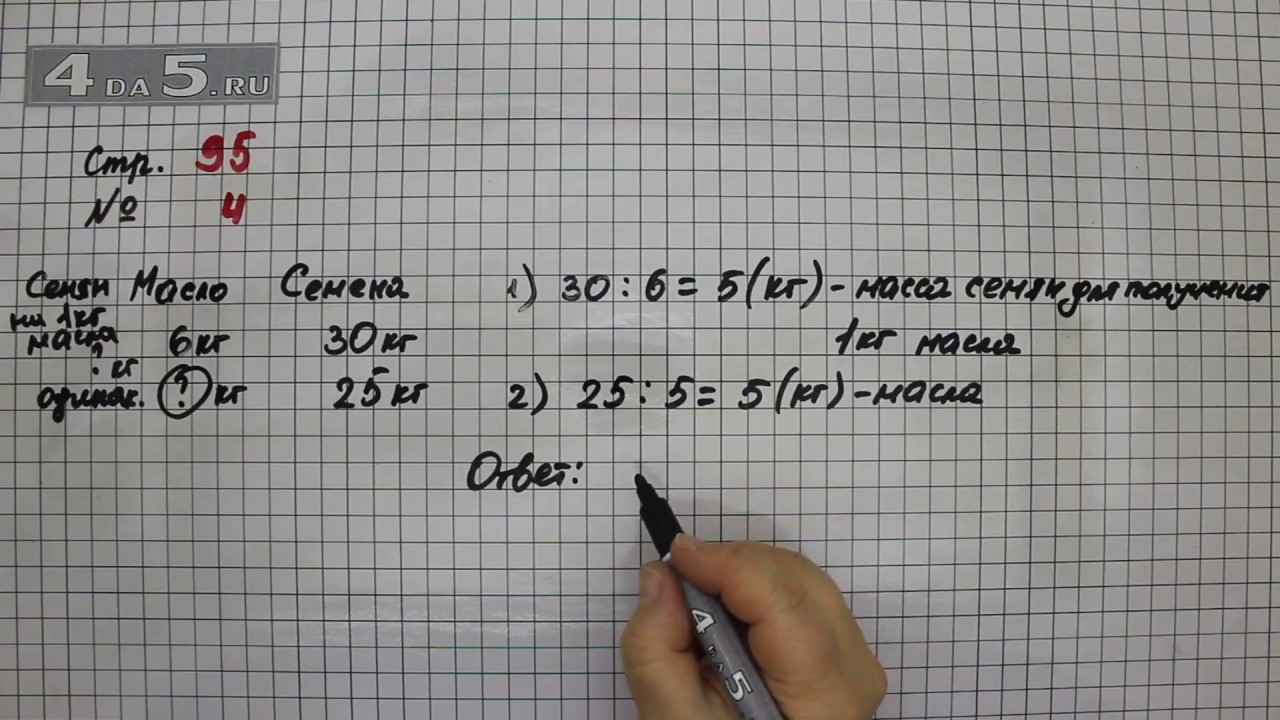 4 DA 5.RU
Стр. 95
№ 4
Семян Масло Семена
на 1кг
масла 6кг 30кг
? кг
одинак. ? кг 25кг
1) 30 : 6 = 5 (кг) - масса семян для получения
1кг масла
2) 25 : 5 = 5 (кг) - масла
Ответ:
4 DA 5